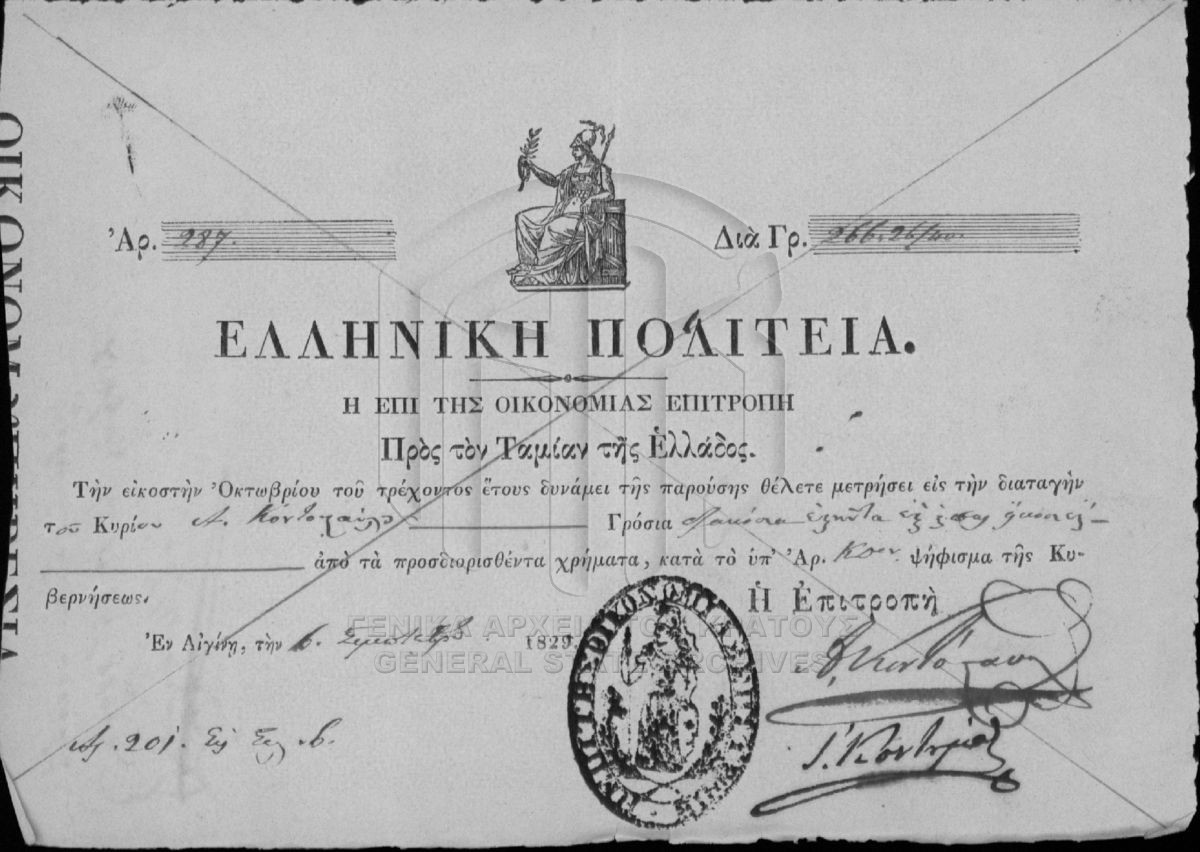 Ἀρ. 287.
Διὰ Γρ. 266.26/40.
ΕΛΛΗΝΙΚΗ ΠΟΛΙΤΕΙΑ.
Η ΕΠΙ ΤΗΣ ΟΙΚΟΝΟΜΙΑΣ ΕΠΙΤΡΟΠΗ
Πρὸς τὸν Ταμίαν τῆς Ἑλλάδος.
Τὴν εἰκοστὴν Ὀκτωβρίου τοῦ τρέχοντος ἔτους δυνάμει τῆς παρούσης θέλετε μετρήσει εἰς τὴν διαταγὴν
τοῦ Κυρίου Α. Κοντόσταυλος Γρόσια διακόσια ἑξῆντα ἓξ
ἀπὸ τὰ προσδιορισθέντα χρήματα, κατὰ τὸ ὑπ' Ἀρ. ψήφισμα τῆς Κυ-
βερνήσεως.
Ἡ Ἐπιτροπὴ
Ἐν Αἰγίνῃ, τὴν 1829.
ΓΕΝΙΚΑ ΑΡΧΕΙΑ ΤΟΥ ΚΡΑΤΟΥΣ
GENERAL STATE ARCHIVES
Α. Κοντόσταυλος
Ἀρ. 201.